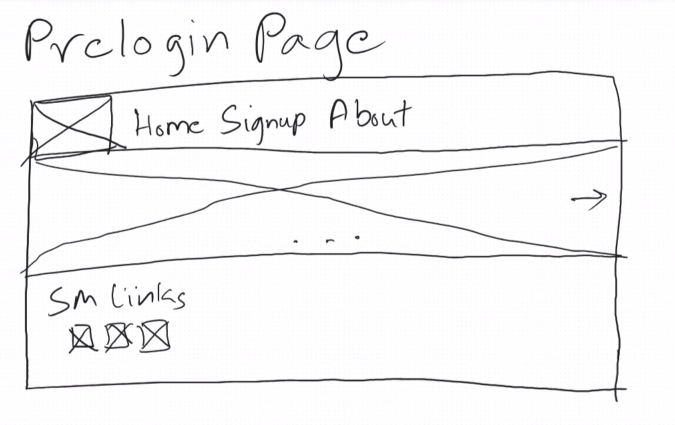 Prelogin Page
Home Signup About
. . .
Sm Links